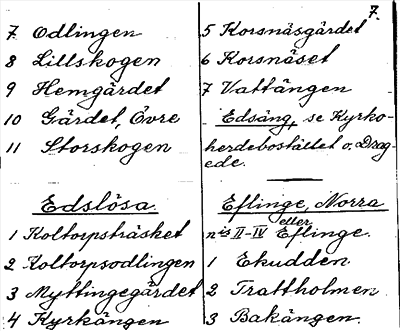 7 Odlingen
8 Lillskogen
9 Hemgärdet
10 Gärdet, Övre
11 Storskogen
Edslösa.
1 Koltorpsträsket
2 Koltorpsodlingen
3 Myttingegärdet
4 Kyrkängen
7.
5 Korsnäsgärdet
6 Korsnäset
7 Vattängen
Edsäng, se Kyrko-
herdebostället o. Drag-
ede.
Eflinge, Norra
eller
n:is II-IV Eflinge.
1 Ekudden
2 Trattholmen
3 Bakängen.